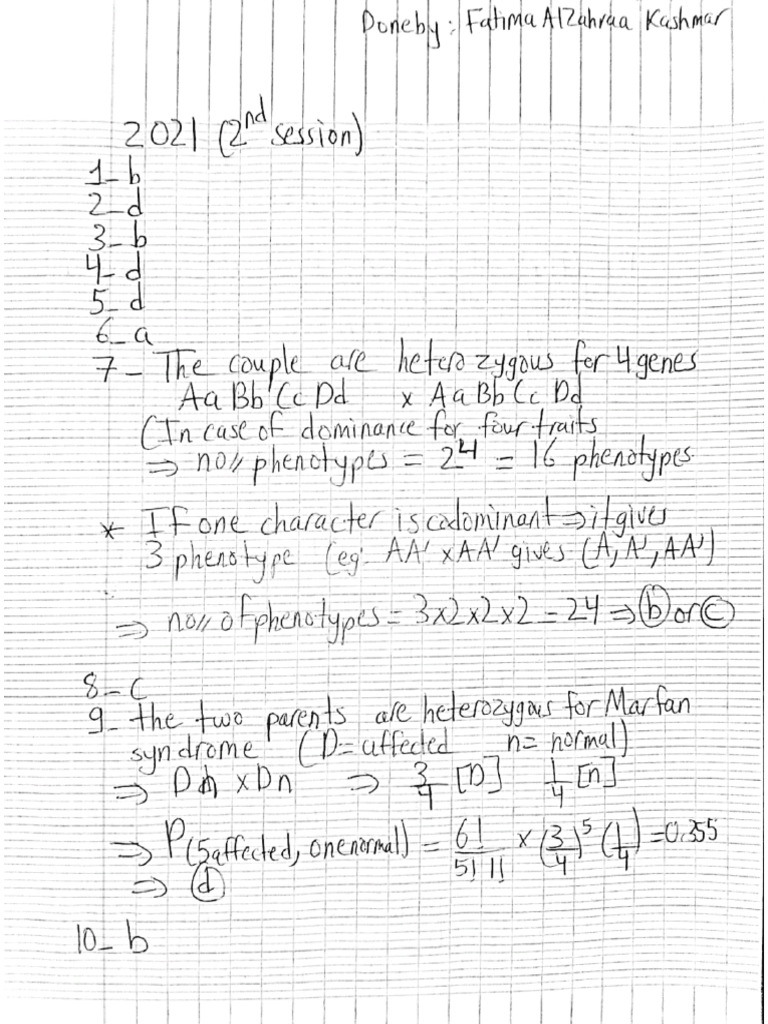 Done by: Fatima AlZahraa Kashmar
2021 (2nd session)
1_ b
2_ d
3_ b
4_ d
5_ d
6_ a
7_ The couple are heterozygous for 4 genes
AaBbCcDd x AaBbCcDd
(In case of dominance for four traits
⇒ no// phenotypes = 2^4 = 16 phenotypes
* If one character is codominant ⇒ it gives
3 phenotype (eg: AA' x AA' gives (A, A', AA')
⇒ no// of phenotypes = 3x2x2x2 = 24 ⇒ (b) or (c)
8_ c
9_ the two parents are heterozygous for Marfan
syndrome (D= affected n= normal)
⇒ Dn x Dn ⇒ 3/4 [D] 1/4 [n]
⇒ P(5affected, one normal) = 6!/5!1! x (3/4)^5 (1/4) = 0.355
⇒ (d)
10_ b